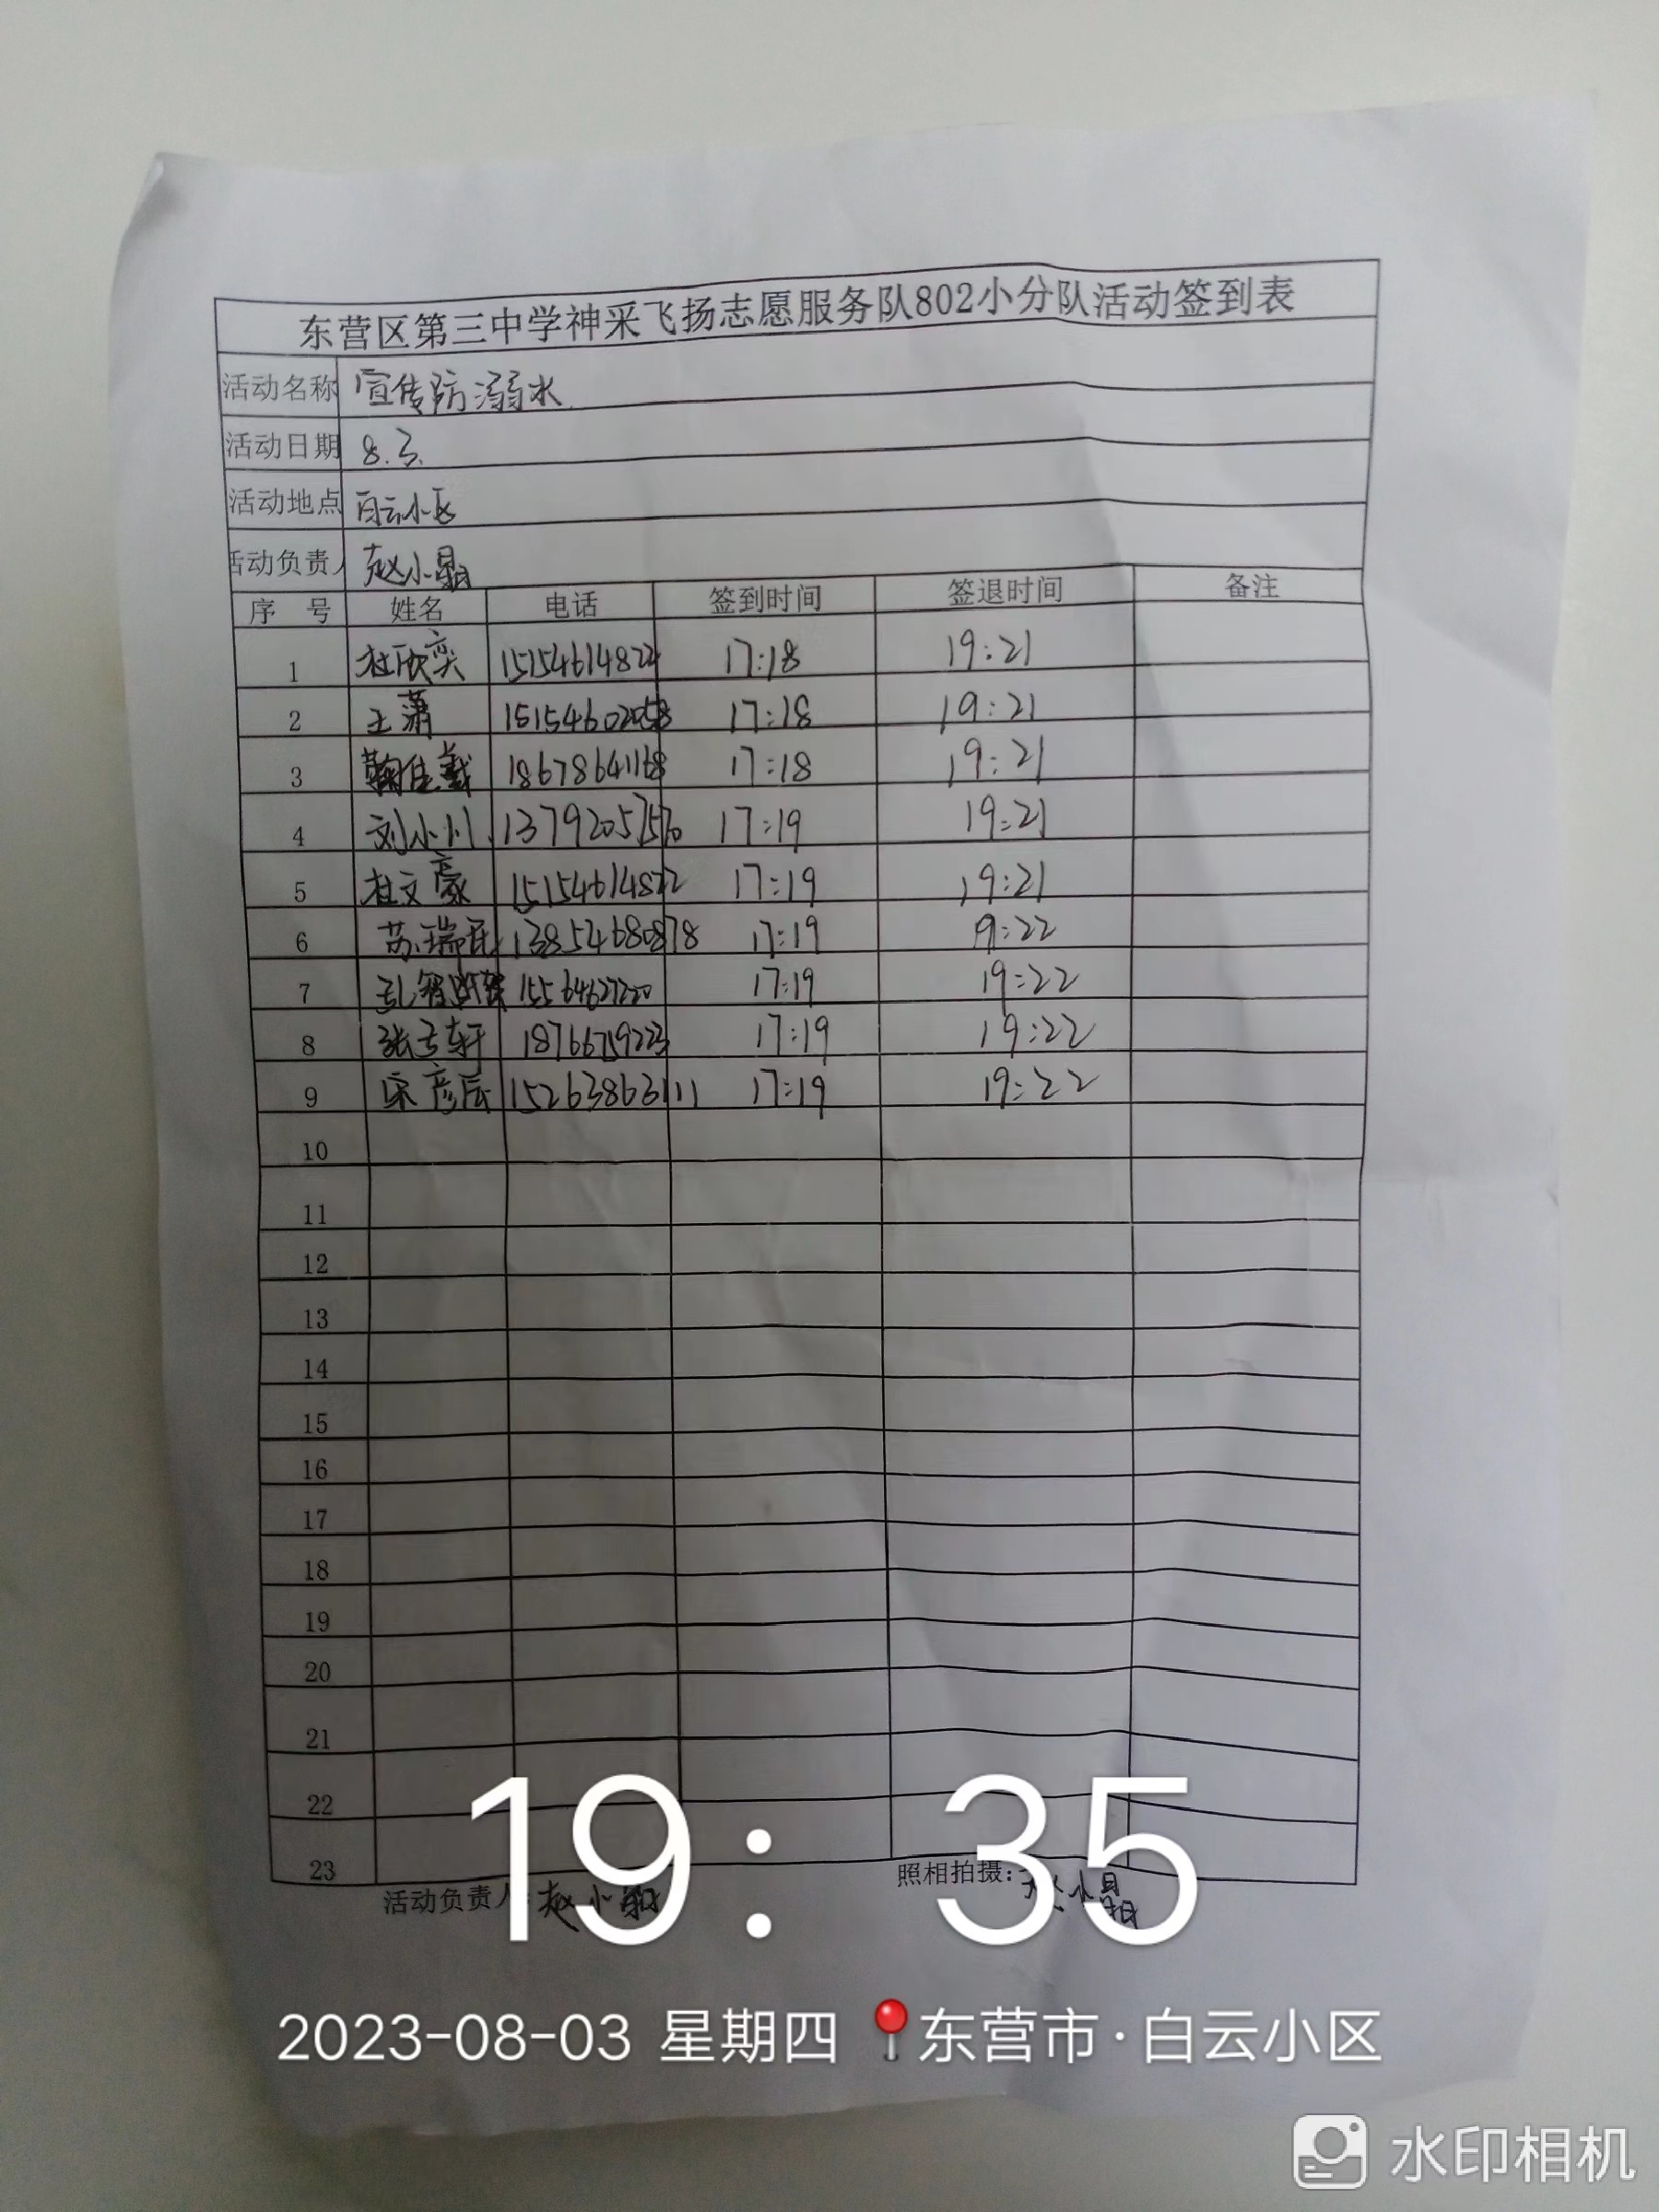 东营区第三中学神采飞扬志愿服务队802小分队活动签到表
活动名称 宣传防溺水
活动日期 8.3.
活动地点 白云小区
活动负责人 赵小
序 号 姓名 电话 签到时间 签退时间 备注
1 杜欣奕 15154614822 17:18 19:21
2 王萧 15154602058 17:18 19:21
3 18678641168 17:18 19:21
4 刘小川 17:19 19:21
5 杜文豪 15154614822 17:19 19:21
6 苏瑞 17:19 9:22
7 孔 15564627220 17:19 19:22
8 张 轩 18766759223 17:19 19:22
9 宋彦辰 15263863111 17:19 19:22
10
11
12
13
14
15
16
17
18
19
20
21
22
23
活动负责人: 赵小 照相拍摄: 赵小
19:35
2023-08-03 星期四 东营市·白云小区
水印相机